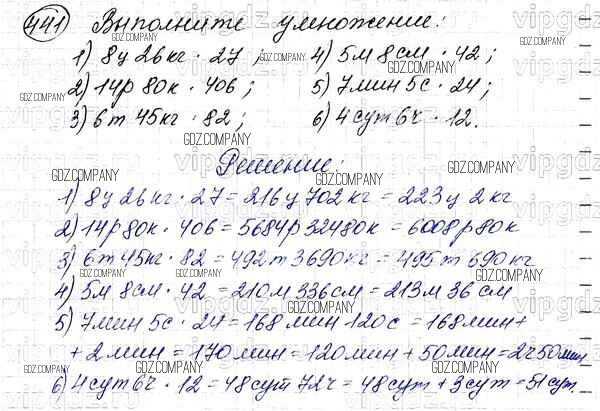 441 Выполните умножение:
1) 8ц 26кг · 27; 4) 5м 8см · 42;
2) 14р 80к · 406; 5) 7мин 5с · 24;
3) 6т 45кг · 82; 6) 4сут 6ч · 12.
Решение:
1) 8ц 26кг · 27 = 216ц 702кг = 223ц 2кг
2) 14р 80к · 406 = 5684р 32480к = 6008р 80к
3) 6т 45кг · 82 = 492т 3690кг = 495т 690кг
4) 5м 8см · 42 = 210м 336см = 213м 36см
5) 7мин 5с · 24 = 168мин 120с = 168мин +
+ 2мин = 170мин = 120мин + 50мин = 2ч 50мин
6) 4сут 6ч · 12 = 48сут 72ч = 48сут + 3сут = 51сут.